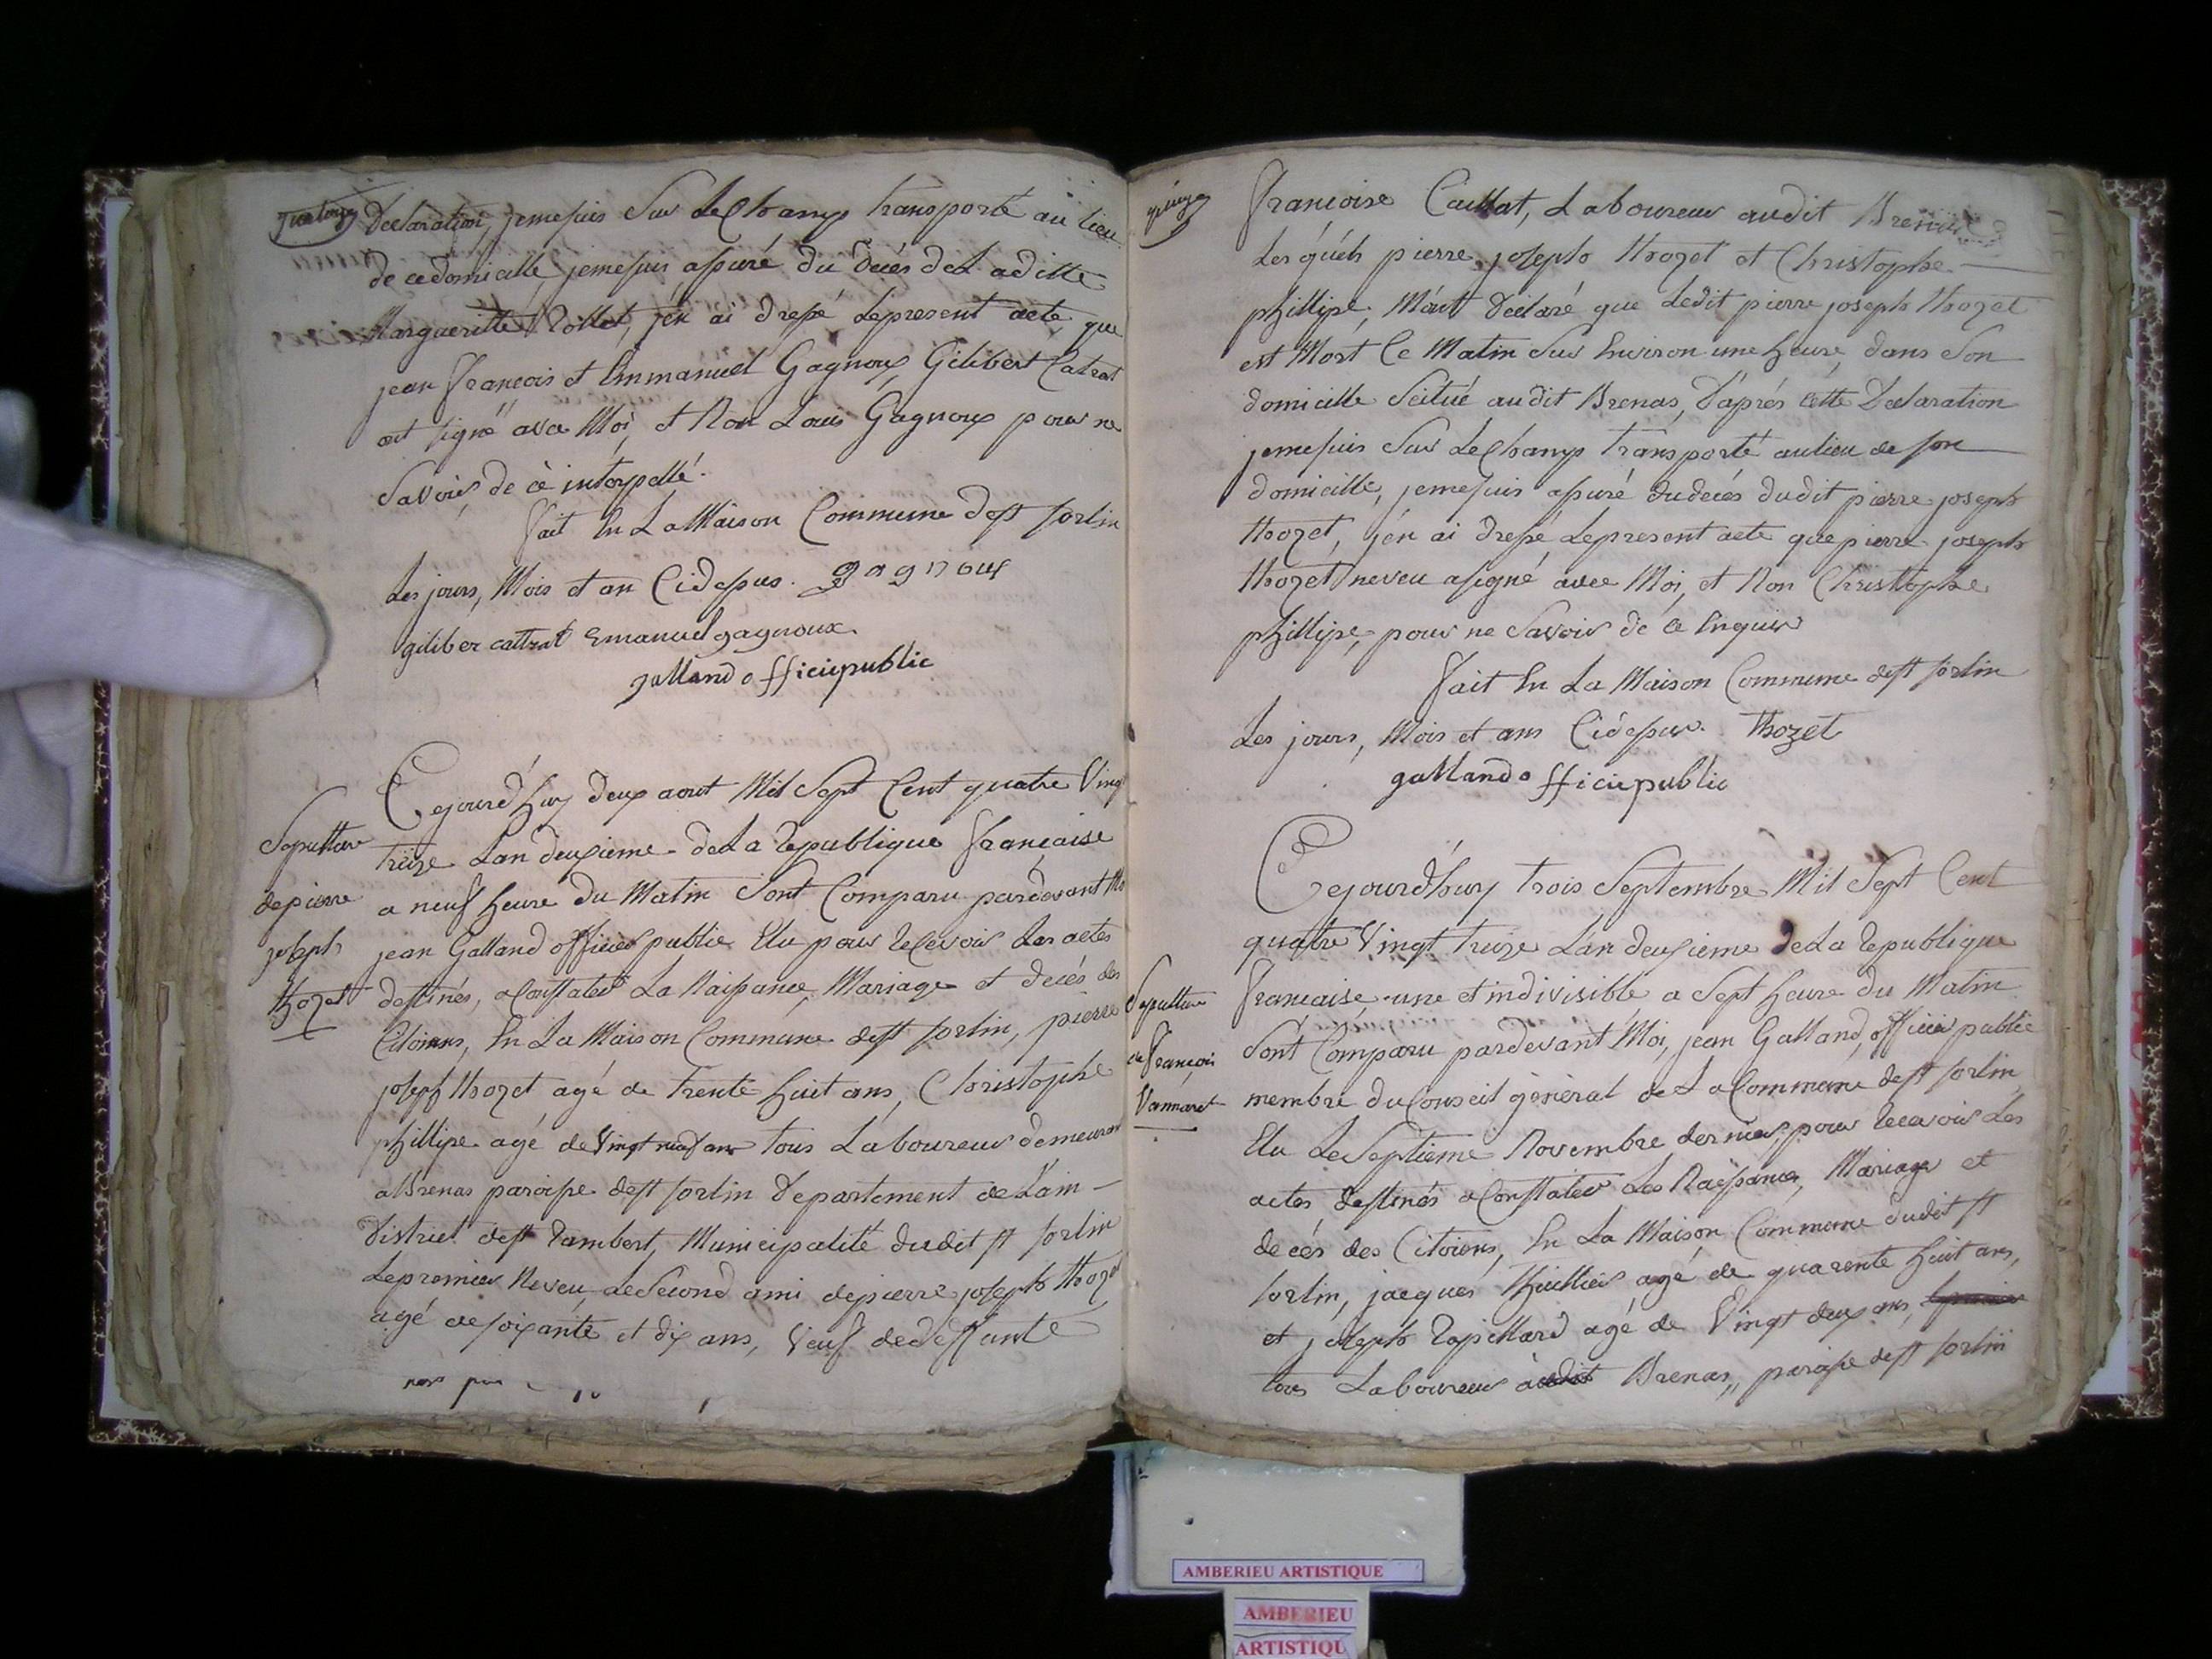 quatorze
Declaration, jemesuis Sur LeChamp transporté au lieu
de cedomicille, jemesuis assuré du Décés deLaditte
Margueritte Rollet, j'en ai dressé Lepresent acte que
jean françois et Emmanuel Gagnoux Gilibert Catrat
ont signé avec Moi, et Non Louis Gagnoux pour ne
Savoir, de cè intorpellé.
fait En La Maison Commune de st sorlin
Les jours, Mois et an Cidessus. gagnoux
giliber cattrat Emanuel gagnoux
galland officiepublic
Sepulture
depierre
joseph
thozet
Cejourd'huy deux aout Mil Sept Cent quatre Vingt
treize Lan deuxieme deLa republique française
a neuf heure du Matin Sont Comparu pardevant Moi
jean Galland officier public Elu pour recevoir Les actes
destinés, aConstater La Naissance, Mariage et decés des
Citoiens, En La Maison Commune de st sorlin, pierre
joseph thozet agé de trente huit ans, Christophe
phillipe agé de Vingt neuf ans tous Laboureur demeurant
aBrenas paroisse de st sorlin Departement de Lain
District de st rambert, Municipalité dudit st sorlin
Lepremier Neveu, LeSecond ami depierre joseph thozet
agé de soixante et dix ans, Veuf dedeffunte
quinze
françoise Caillat, Laboureur audit Brenas
Lesquéls pierre joseph thozet et Christophe
phillipe, M'ont Déclaré que Ledit pierre joseph thozet
est Mort Ce Matin Sur Environ une heure, dans Son
domicille Scitué audit Brenas, D'aprés Cette Declaration
jemesuis Sur LeChamp transporté aulieu de son
domicille, jemesuis assuré dudecés dudit pierre joseph
thozet, j'en ai dressé Lepresent acte quepierre joseph
thozet neveu asigné avec Moi, et Non Christophe
phillipe, pour ne Savoir de ce Enquis
fait En La Maison Commune de st sorlin
Les jours, Mois et ans Cidessus. thozet
galland officiepublic
Sepulture
de françois
Vannaret
Cejourd'huy trois Septembre Mil Sept Cent
quatre Vingt treize Lan deuxieme deLa republique
française une et indivisible a Sept heure du Matin
Sont Comparu pardevant Moi, jean Galland, officié public
membre du Conseil général de La Commune de st sorlin
Elu Le Septieme Novembre dernier, pour recevoir Les
actes destinés aConstater Les Naissances, Mariage et
decés des Citoiens, En La Maison Commune dudit st
sorlin, jacques thuillier agé de quarente huit ans,
et joseph rapillard agé de Vingt deux ans,
tous Laboureur a Brenas, paroisse de st sorlin
AMBERIEU ARTISTIQUE
AMBERIEU
ARTISTIQU